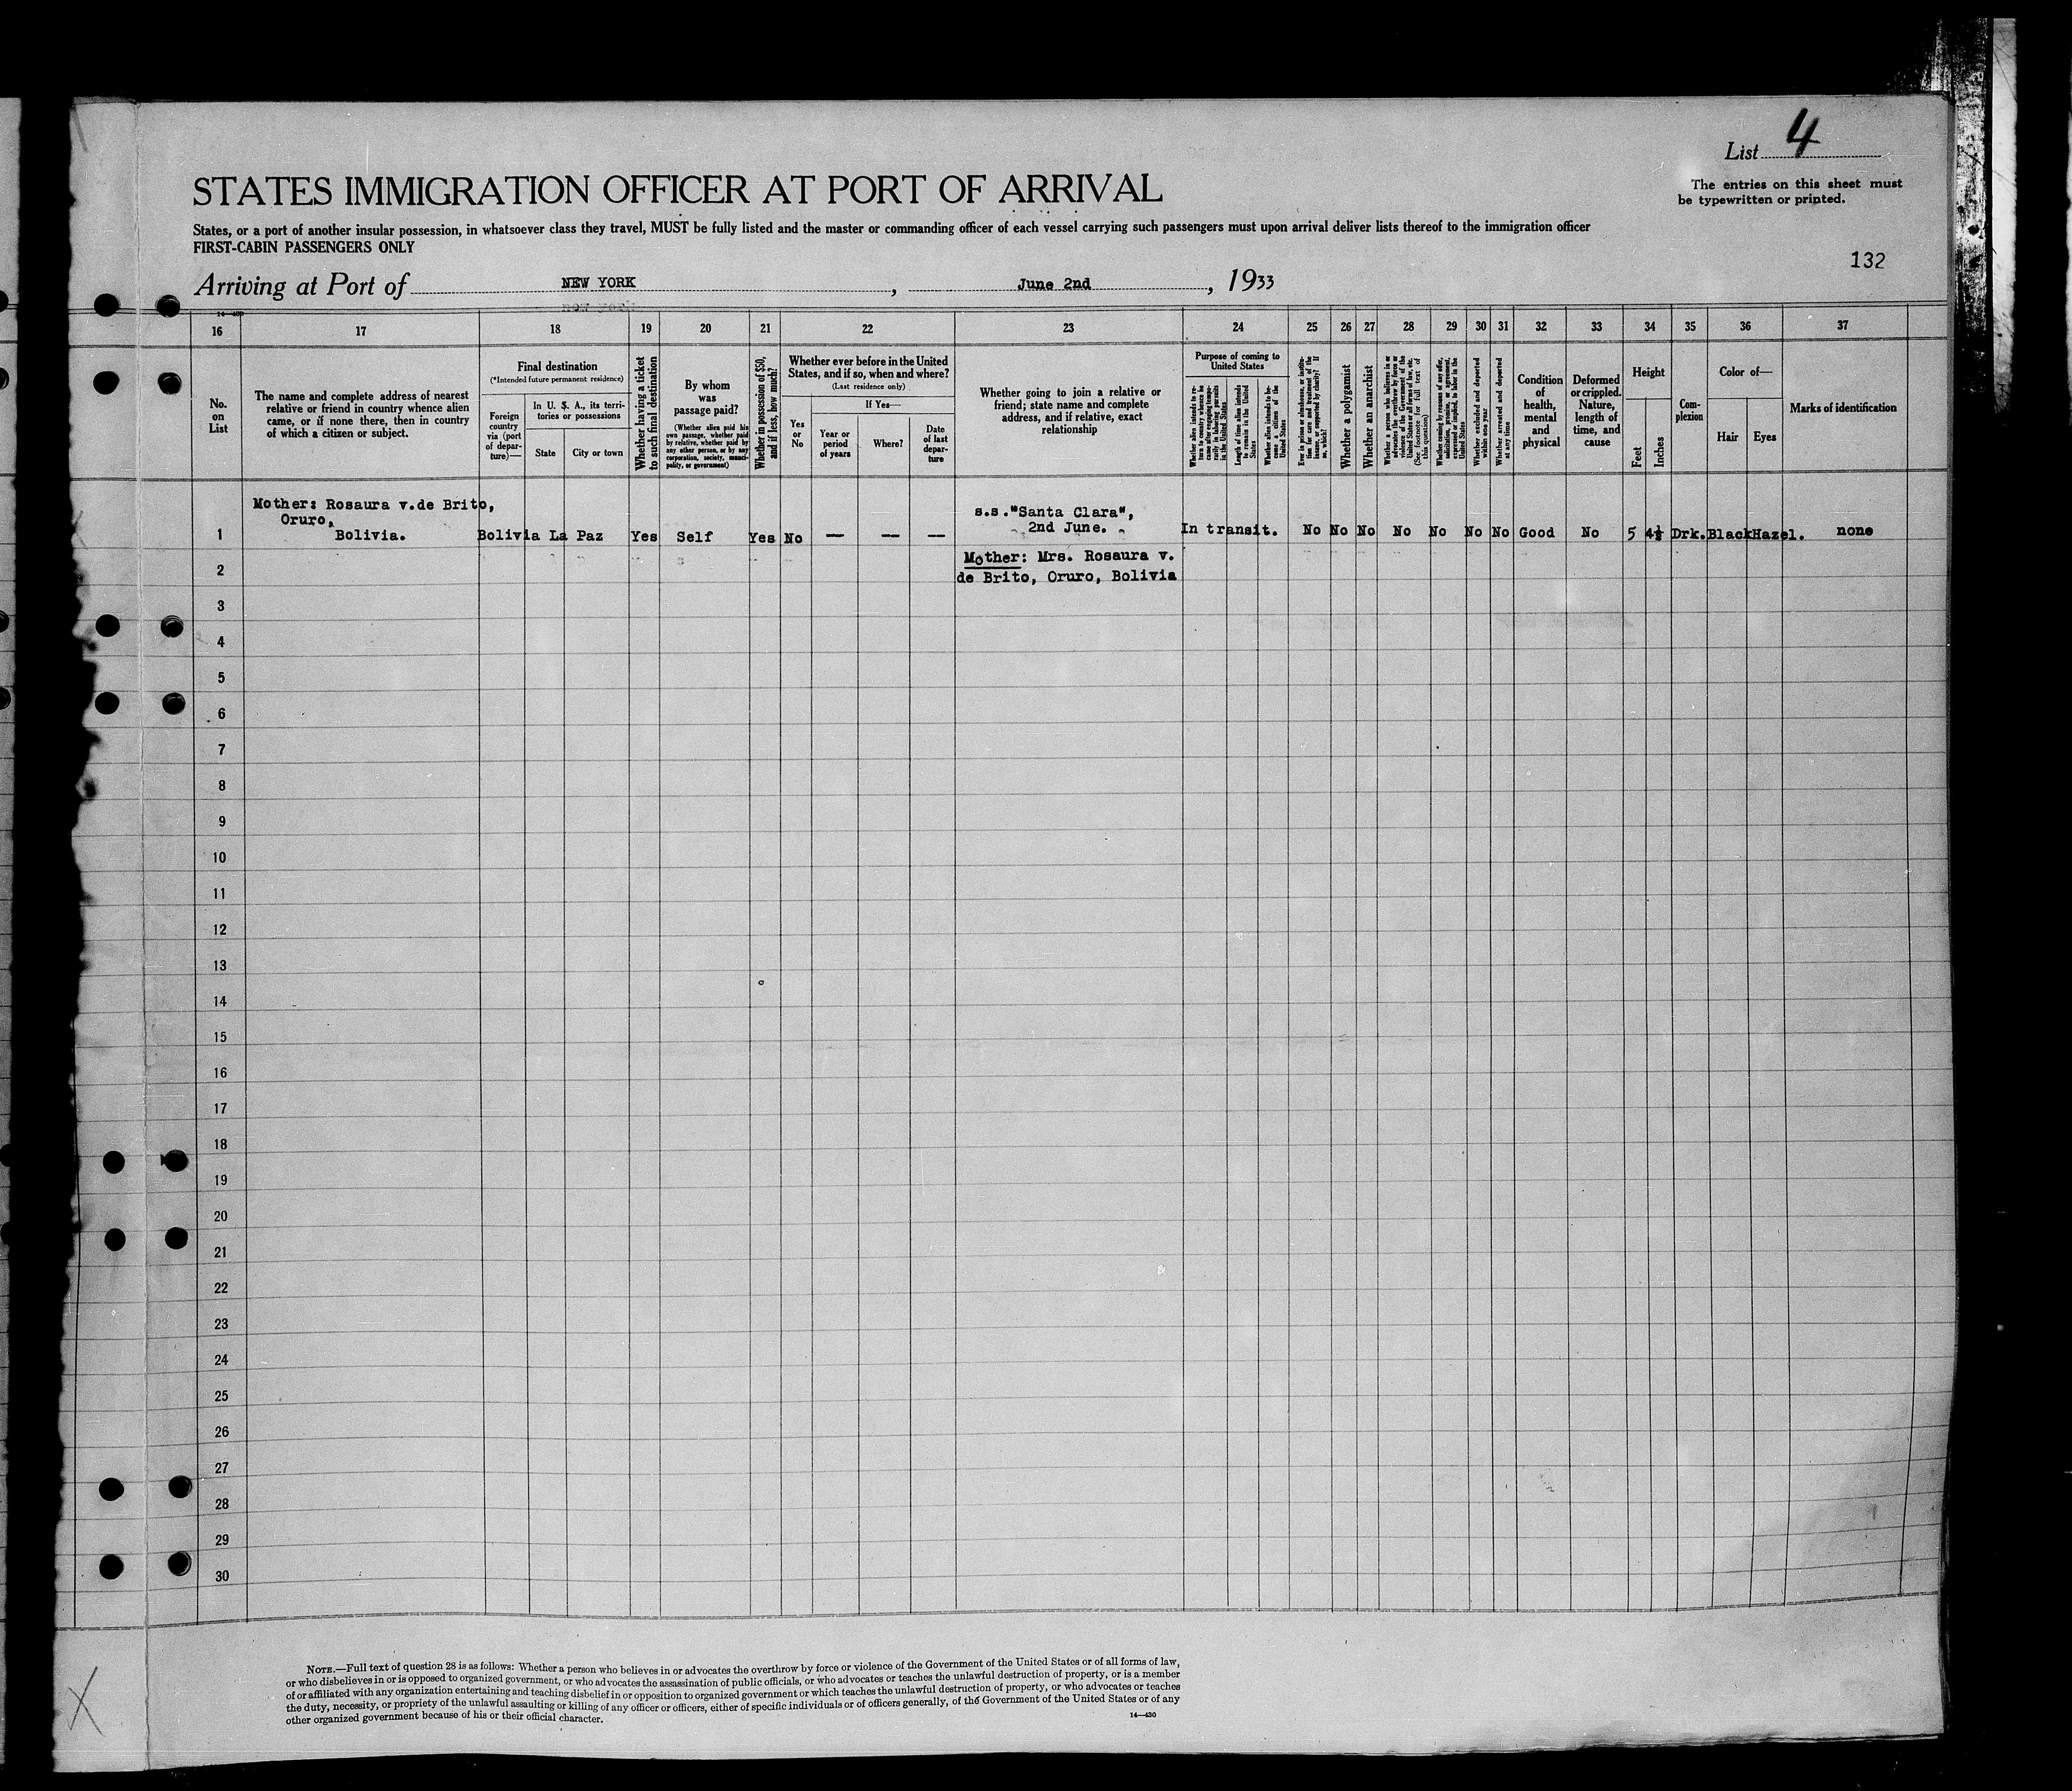 List 4
STATES IMMIGRATION OFFICER AT PORT OF ARRIVAL
The entries on this sheet must
be typewritten or printed.
States, or a port of another insular possession, in whatsoever class they travel, MUST be fully listed and the master or commanding officer of each vessel carrying such passengers must upon arrival deliver lists thereof to the immigration officer
FIRST-CABIN PASSENGERS ONLY
132
Arriving at Port of NEW YORK, June 2nd, 1933
16 17 18 19 20 21 22 23 24 25 26 27 28 29 30 31 32 33 34 35 36 37
No.
on
List
The name and complete address of nearest
relative or friend in country whence alien
came, or if none there, then in country
of which a citizen or subject.
Final destination
(*Intended future permanent residence)
Foreign
country
via (port
of depar-
ture)—
In U. S. A., its terri-
tories or possessions
State
City or town
Whether having a ticket
to such final destination
By whom
was
passage paid?
(Whether alien paid his
own passage, whether paid
by relative, whether paid by
any other person, or by any
corporation, society, munici-
pality, or government)
Whether in possession of $50,
and if less, how much?
Whether ever before in the United
States, and if so, when and where?
(Last residence only)
Yes
or
No
If Yes—
Year or
period
of years
Where?
Date
of last
depar-
ture
Whether going to join a relative or
friend; state name and complete
address, and if relative, exact
relationship
Purpose of coming to
United States
Whether alien intends to re-
turn to country whence he
came after engaging tempo-
rarily in laboring pursuits
in the United States
Length of time alien intends
to remain in the United
States
Whether alien intends to be-
come a citizen of the
United States
Ever in prison or almshouse, or institu-
tion for care and treatment of the
insane, or supported by charity? If
so, which?
Whether a polygamist
Whether an anarchist
Whether a person who believes in or
advocates the overthrow by force or
violence of the Government of the
United States or all forms of law, etc.
(See footnote for full text of
this question)
Whether coming by reason of any offer,
solicitation, promise, or agreement,
expressed or implied, to labor in the
United States
Whether excluded and deported
within one year
Whether arrested and deported
at any time
Condition
of
health,
mental
and
physical
Deformed
or crippled.
Nature,
length of
time, and
cause
Height
Feet
Inches
Com-
plexion
Color of—
Hair
Eyes
Marks of identification
Mother: Rosaura v.de Brito,
Oruro,
s.s."Santa Clara",
2nd June.
1 Bolivia. Bolivia La Paz Yes Self Yes No — — — In transit. No No No No No No No Good No 5 4½ Drk. Black Hazel. none
Mother: Mrs. Rosaura v.
2 de Brito, Oruro, Bolivia
3
4
5
6
7
8
9
10
11
12
13
14
15
16
17
18
19
20
21
22
23
24
25
26
27
28
29
30
NOTE.—Full text of question 28 is as follows: Whether a person who believes in or advocates the overthrow by force or violence of the Government of the United States or of all forms of law,
or who disbelieves in or is opposed to organized government, or who advocates the assassination of public officials, or who advocates or teaches the unlawful destruction of property, or is a member
of or affiliated with any organization entertaining and teaching disbelief in or opposition to organized government or which teaches the unlawful destruction of property, or who advocates or teaches
the duty, necessity, or propriety of the unlawful assaulting or killing of any officer or officers, either of specific individuals or of officers generally, of the Government of the United States or of any
other organized government because of his or their official character.
14—430